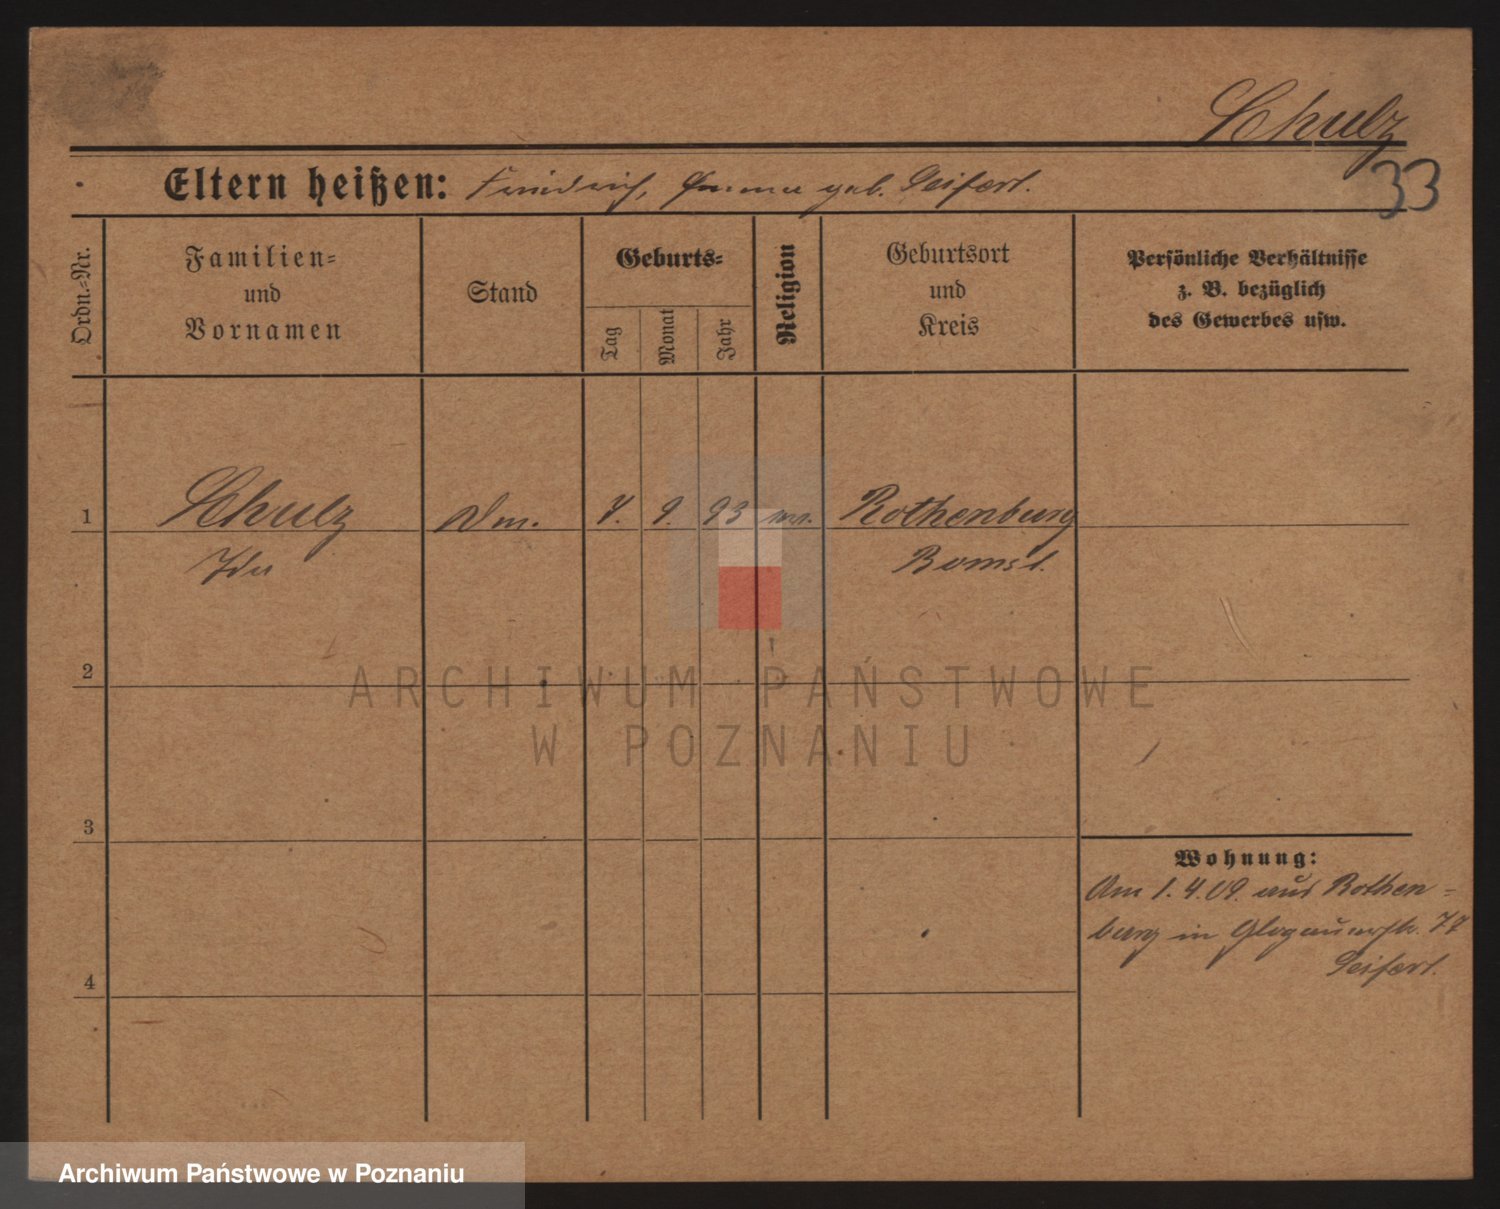 Schulz
33
Eltern heißen: Friedrich, Emma geb. Seifert.
Ordn.-Nr.
Familien-
und
Vornamen
Stand
Geburts-
Tag
Monat
Jahr
Religion
Geburtsort
und
Kreis
Persönliche Verhältnisse
z. B. bezüglich
des Gewerbes usw.
1 Schulz 9. 93 Rothenburg
Ida Bomst.
2
ARCHIWUM PAŃSTWOWE
W POZNANIU
3
Wohnung:
Am 1.4.09. aus Rothen-
burg in Glogauerstr. 77
Seifert.
4
Archiwum Państwowe w Poznaniu